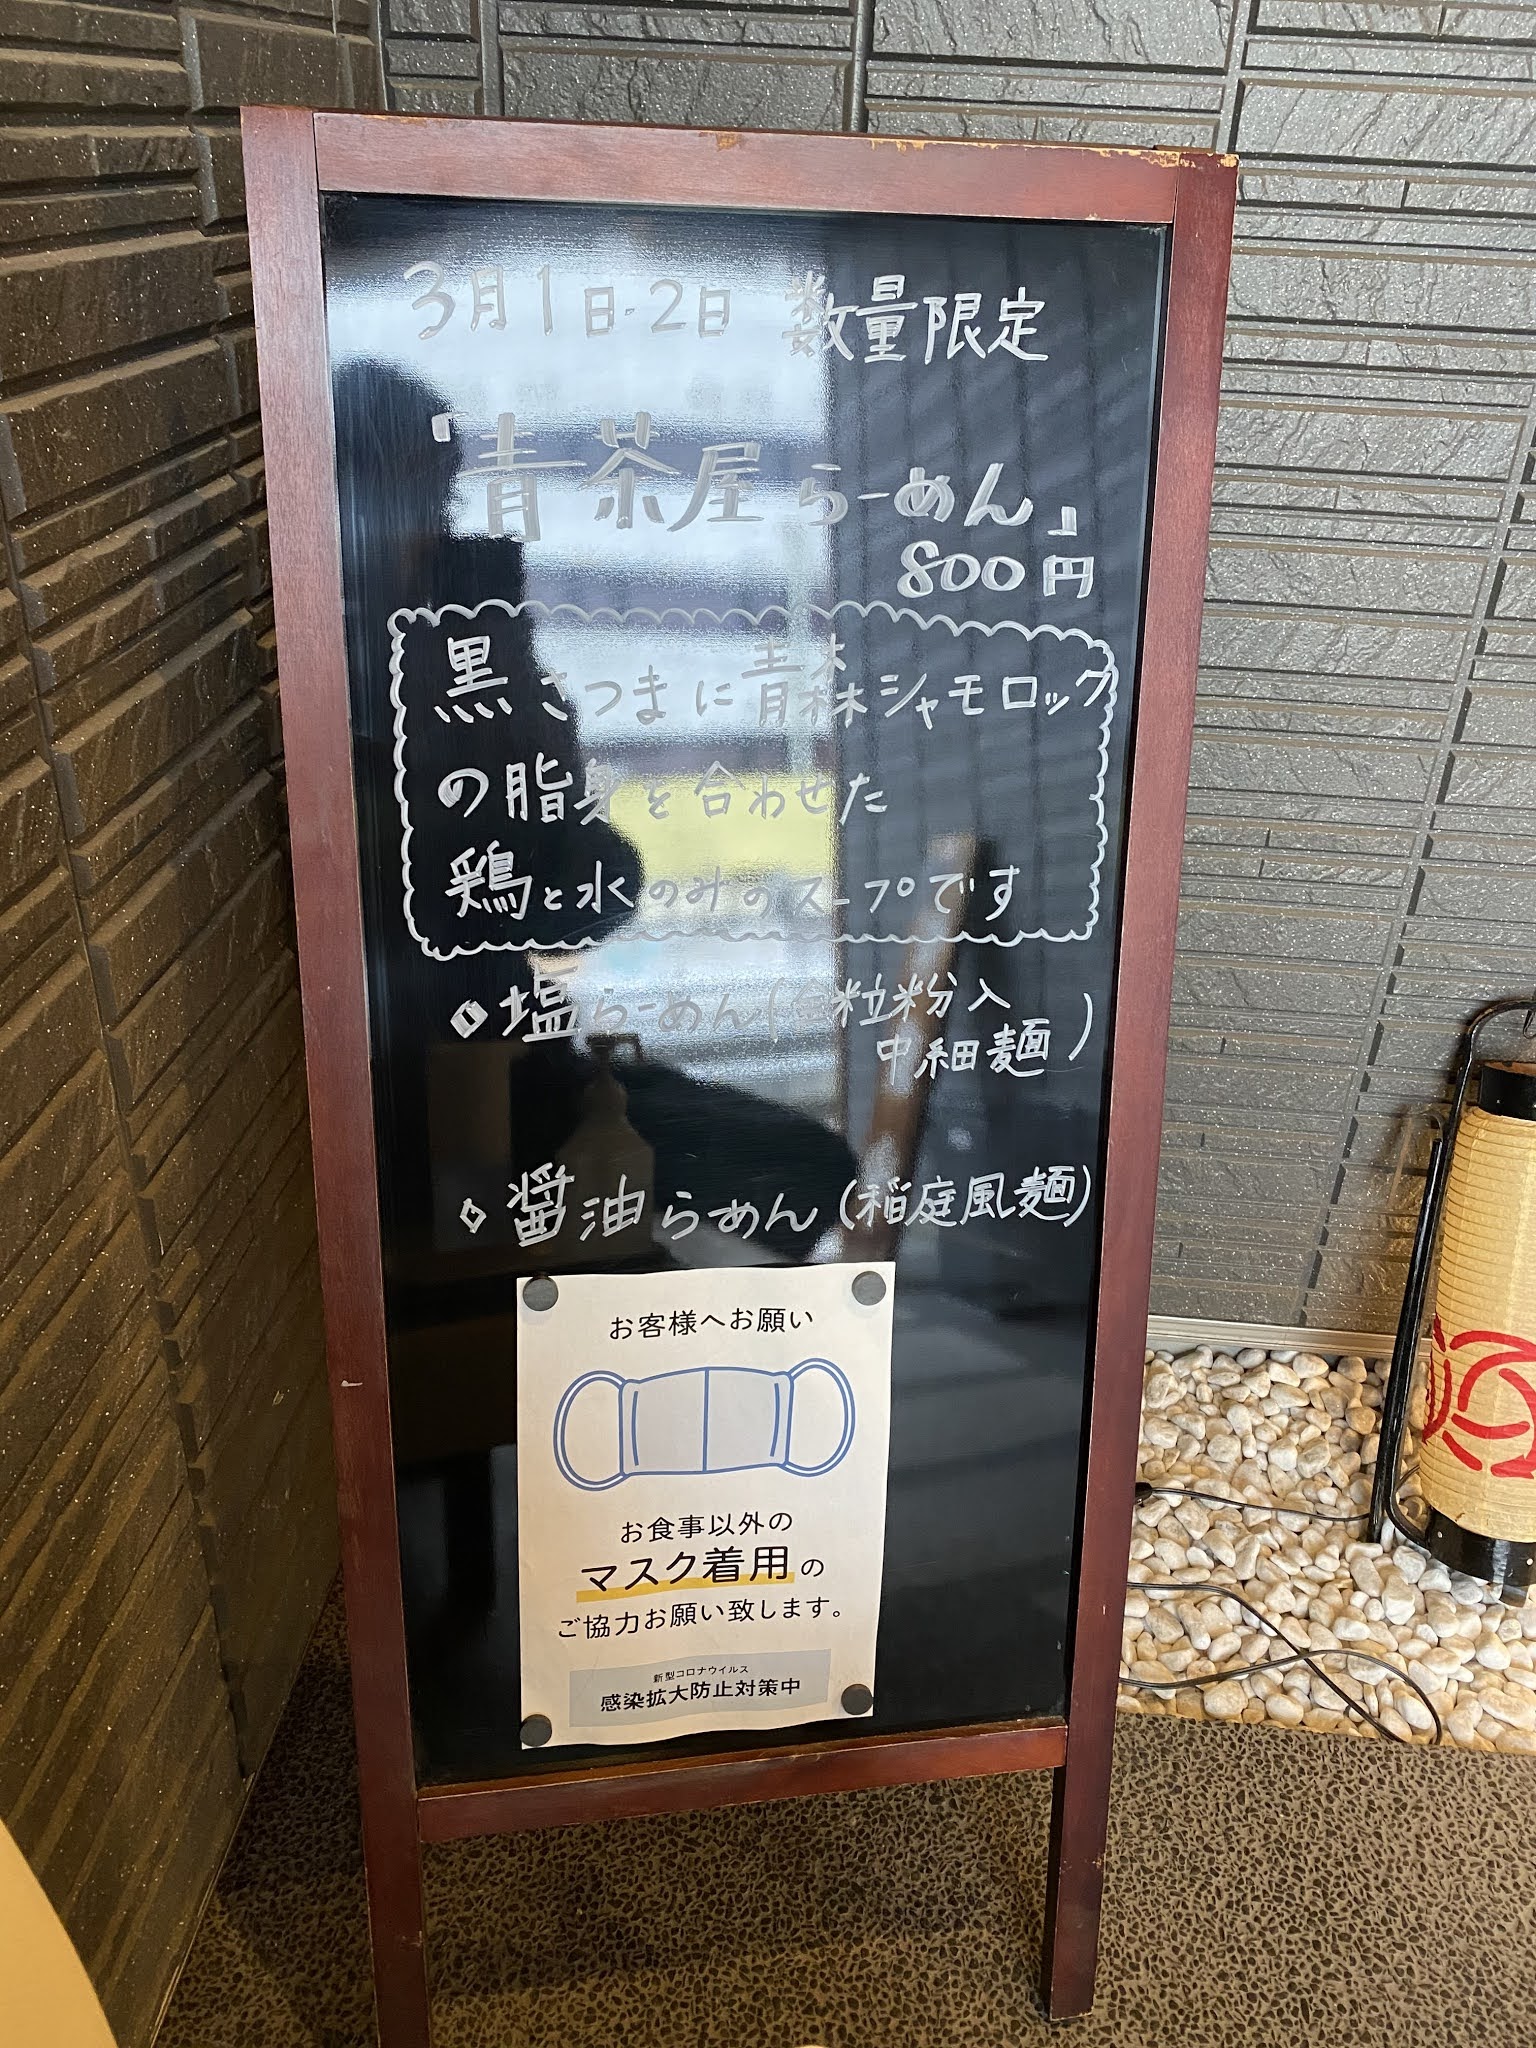 3月1日・2日 数量限定
「青茶屋らーめん」
800円
黒さつまに青森シャモロック
の脂身を合わせた
鶏と水のみのスープです
◇塩らーめん(全粒粉入
中細麺)
◇醤油らめん(稲庭風麺)
お客様へお願い
お食事以外の
マスク着用の
ご協力お願い致します。
新型コロナウイルス
感染拡大防止対策中